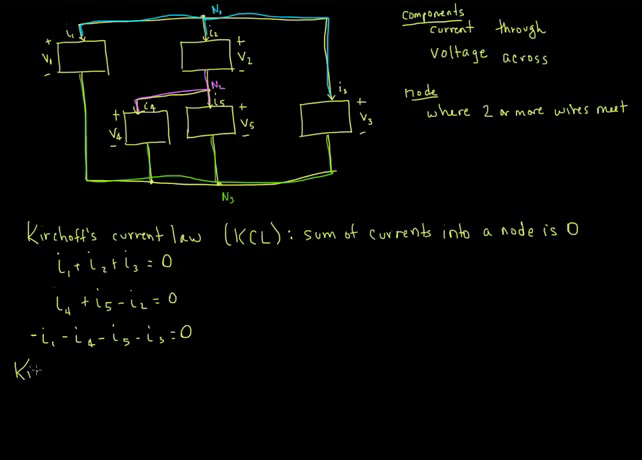 N₁
i₁
i₂
+ V₁ -
+ V₂ -
N₂
i₃
i₄
i₅
+ V₄ -
+ V₅ -
+ V₃ -
N₃
Components
current through
Voltage across
node
where 2 or more wires meet
Kirchoff's current law (KCL): sum of currents into a node is 0
i₁ + i₂ + i₃ = 0
i₄ + i₅ - i₂ = 0
-i₁ - i₄ - i₅ - i₃ = 0
Ki